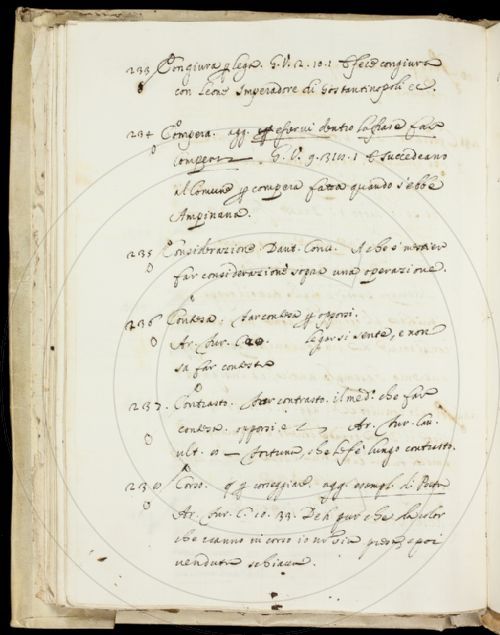 233 Congiura p lega. G. V. 2. 10. 1 E fece congiura
con Leone Imperadore di Gostantinopoli ec.
234 Compera. agg. esservi dentro la frase fare
compera. G. V. 9. 1 E succedeano
al Comune p compera fatta quando s'ebbe
Ampinana.
235 Considerazione Dant. Conv. A che è mestiere
far considerazione sopra una operazione.
236 Contesa. far contesa p opporsi.
Ar. Fur. legar si sente, e non
sa far contesa
237. Contrasto. far contrasto. il med. che fare
contesa. opporsi. Ar. Fur. Cau.
ult. Fortuna, che le fe' lungo contrasto.
Corso. p corseggiare. agg. esempl. di Poeta
Ar. Fur. C. 10. 33. Deh pur che da color
che vanno in corso io non sia presa, e poi
venduta schiava.